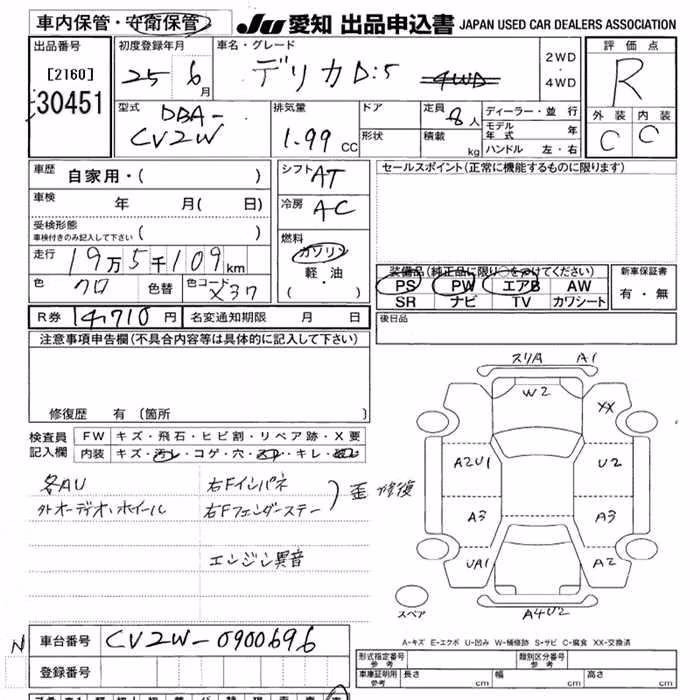 車内保管・安衛保管 JU 愛知 出品申込書 JAPAN USED CAR DEALERS ASSOCIATION
出品番号 初度登録年月 車名・グレード 2WD 評価点
[2160] 25 6月 デリカD:5 4WD ・ R
30451 4WD
型式 排気量 ドア 定員 8人 ディーラー・並行 外装 内装
DBA- モデル年式 年 C C
CV2W 1.99 CC 形状 積載 kg ハンドル 左・右
車歴 自家用・( ) シフト AT セールスポイント(正常に機能するものに限ります)
車検 年 月( 日) 冷房 AC
受検形態
車検付きのみ記入して下さい ( )
走行 19万5千109km 燃料 ガソリン
装備品(純正品に限り○をつけてください) 新車保証書
色 クロ 色替 色コード X37 軽・油 PS PW エアB AW 有・無
( ・ ) SR ナビ TV カワシート
R券 14,710円 名変通知期限 月 日 後日品
注意事項申告欄(不具合内容等は具体的に記入して下さい)
スリA A1
W2
XX
修復歴 有 〔箇所 〕
検査員 FW キズ・飛石・ヒビ割・リペア跡・X要
記入欄 内装 キズ・汚レ・コゲ・穴・・キレ・
A2U1 U2
各AU 右Fインパネ
外オーディオ・ホイール 右Fフェンダーステー 歪 修復
A3 A3
エンジン異音
UA1 A2
スペア
A4U2
車台番号 CV2W-0900696
A-キズ E-エクボ U-凹み W-補修跡 S-サビ C-腐食 XX-交換済
N
登録番号
形式指定番号 参考 類別区分番号 参考
車庫証明用 参考 長さ cm 巾 cm 高さ cm